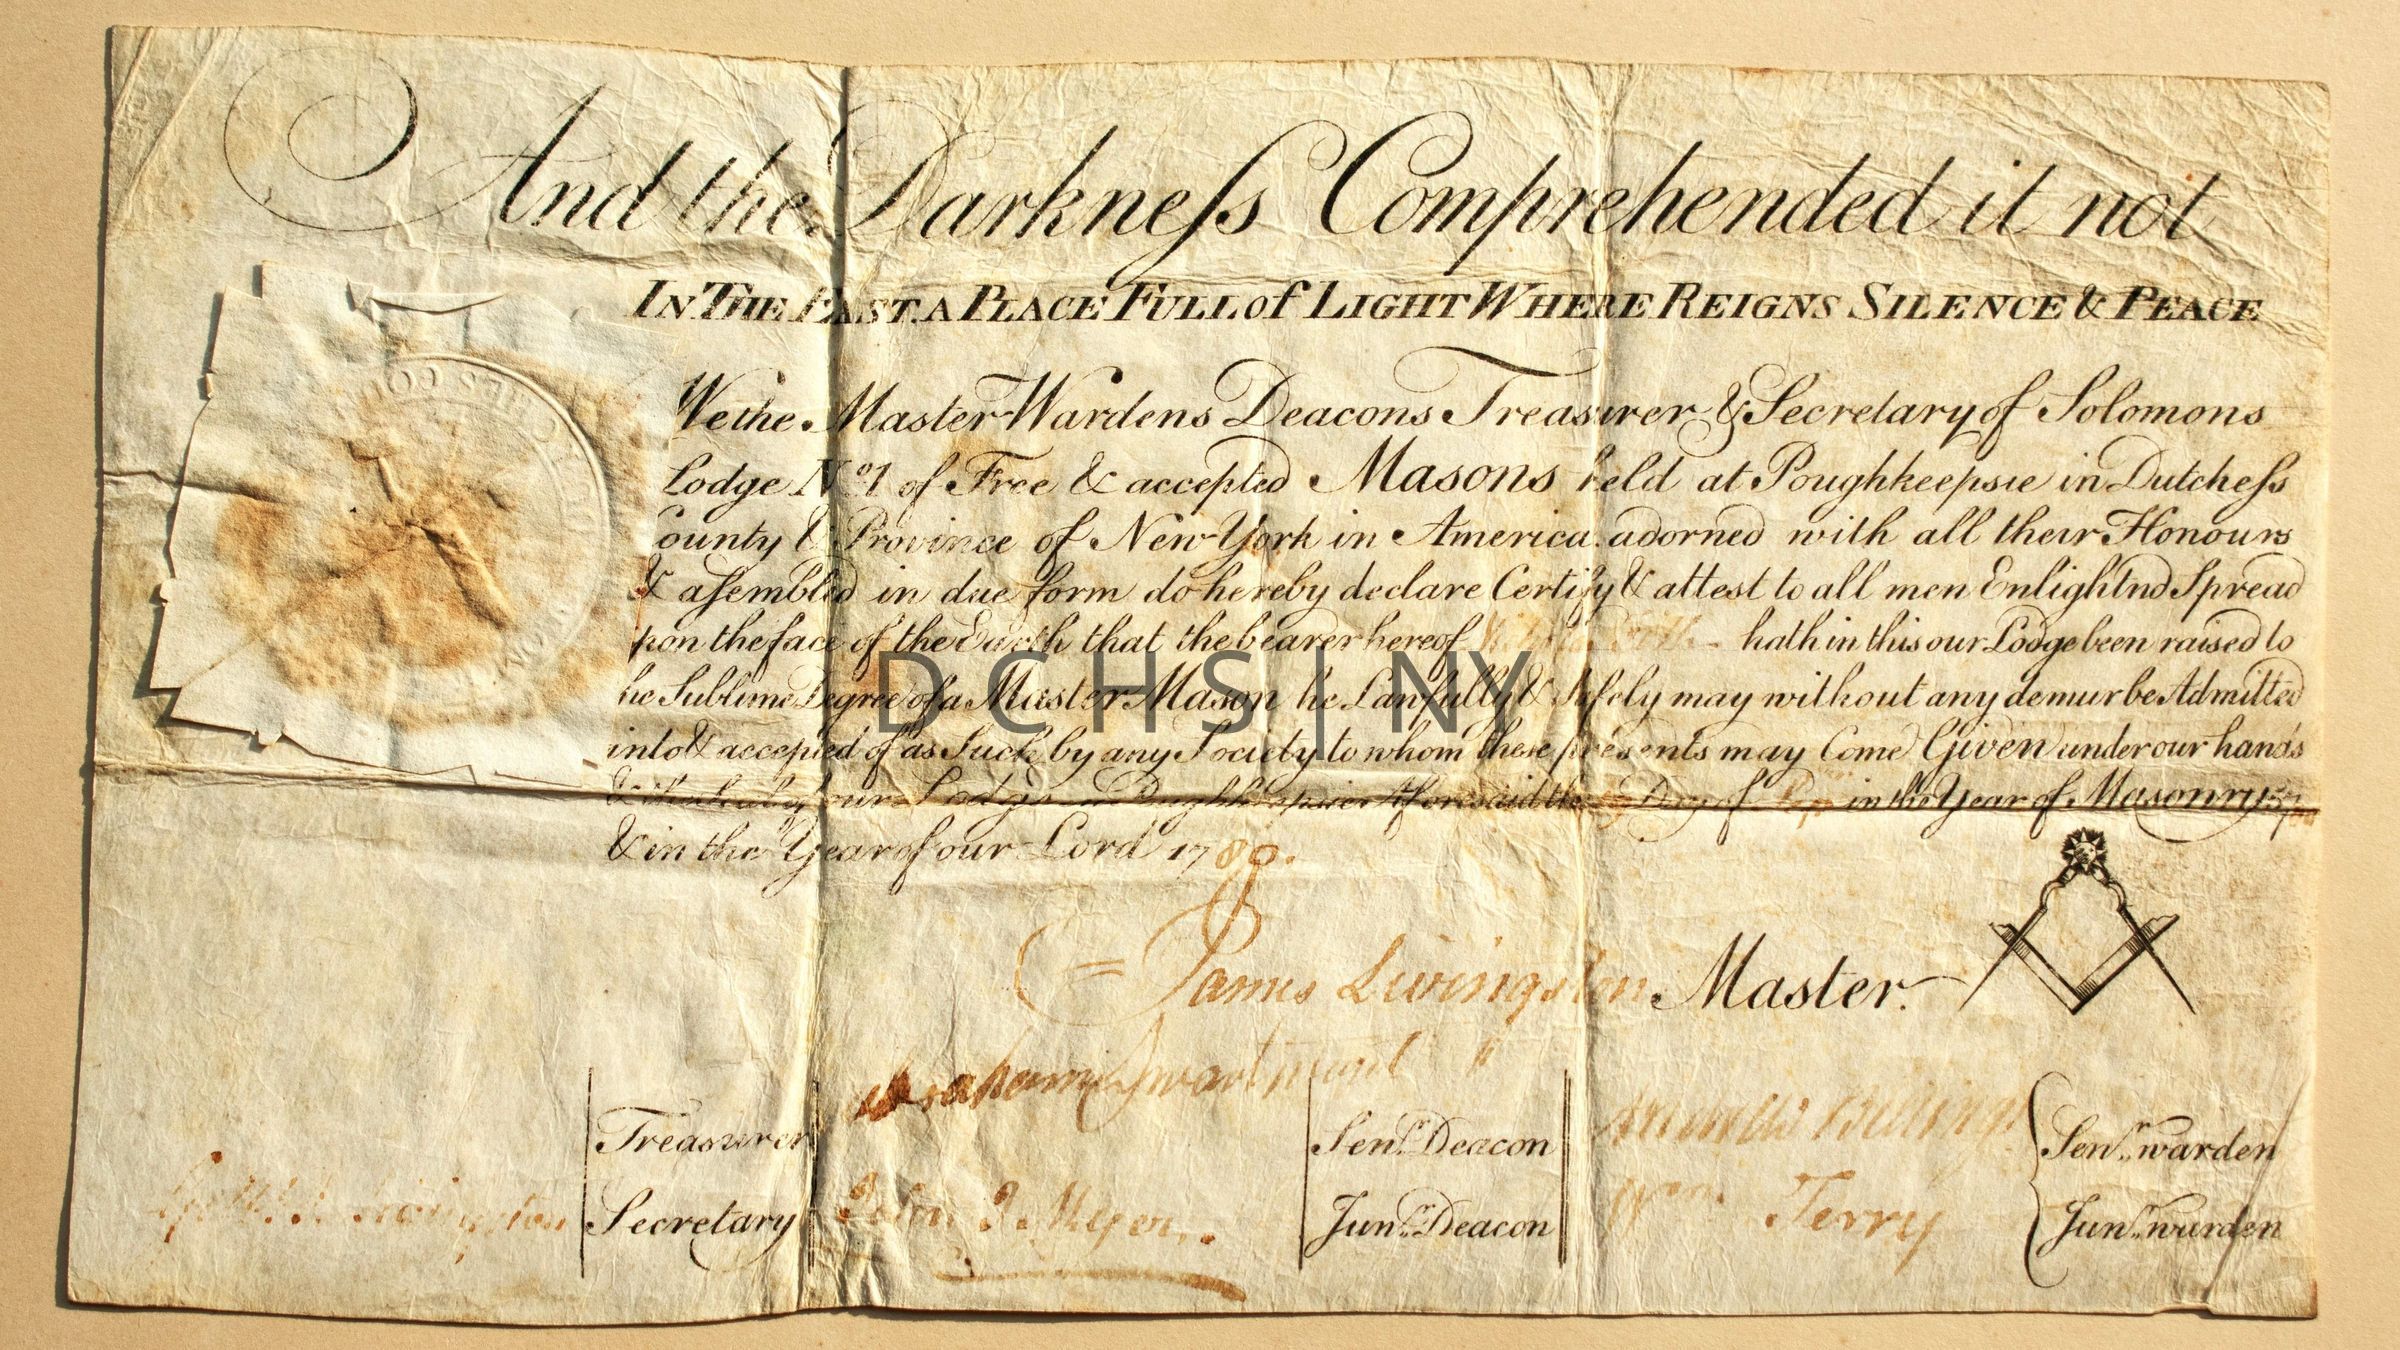 And the Darkneſs Comprehended it not
IN THE EAST. A PLACE FULL of LIGHT WHERE REIGNS SILENCE & PEACE
We the Master Wardens Deacons Treasurer & Secretary of Solomons
Lodge No. 1 of Free & accepted Masons held at Poughkeepsie in Dutcheſs
County & Province of New York in America. adorned with all their Honours
& aſembled in due form do hereby declare Certify & attest to all men Enlightnd Spread
pon the face of the Earth that the bearer hereof hath in this our Lodge been raised to
he Sublime Degree of a Master Mason he Lawfully & Safely may without any demur be Admitted
into & accepted of as Such by any Society to whom these presents may Come Given under our hands
our Lodge Aforesaid the Day of in the Year of Masonry
& in the Year of our Lord 17
James Livingston Master.
Abraham
Treasurer Senr. Deacon Senr. warden
Livingston Secretary Meyer Junr. Deacon Wm. Terry Junr. warden
DCHS | NY